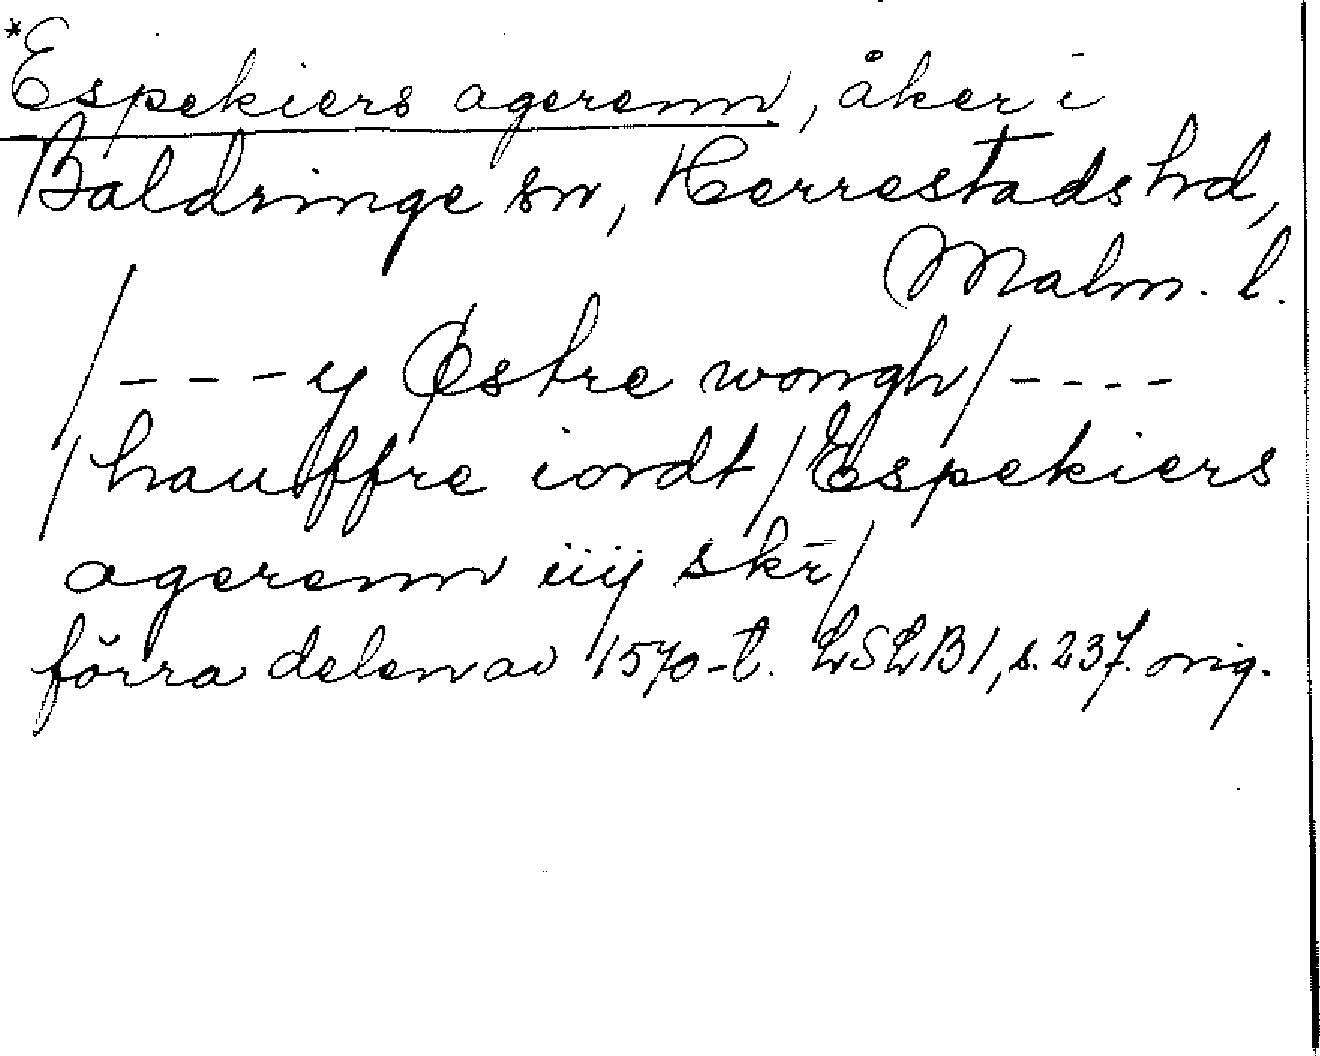 *Espekiers agerenn, åker i
Baldringe sn, Herrestads hd,
Malm. l.
/---y Østre wongh/----
/hauffre iordt/Espekiers
agerenn iiij skr̄/
förra delen av 1570-t. LSLB1, s. 237. orig.